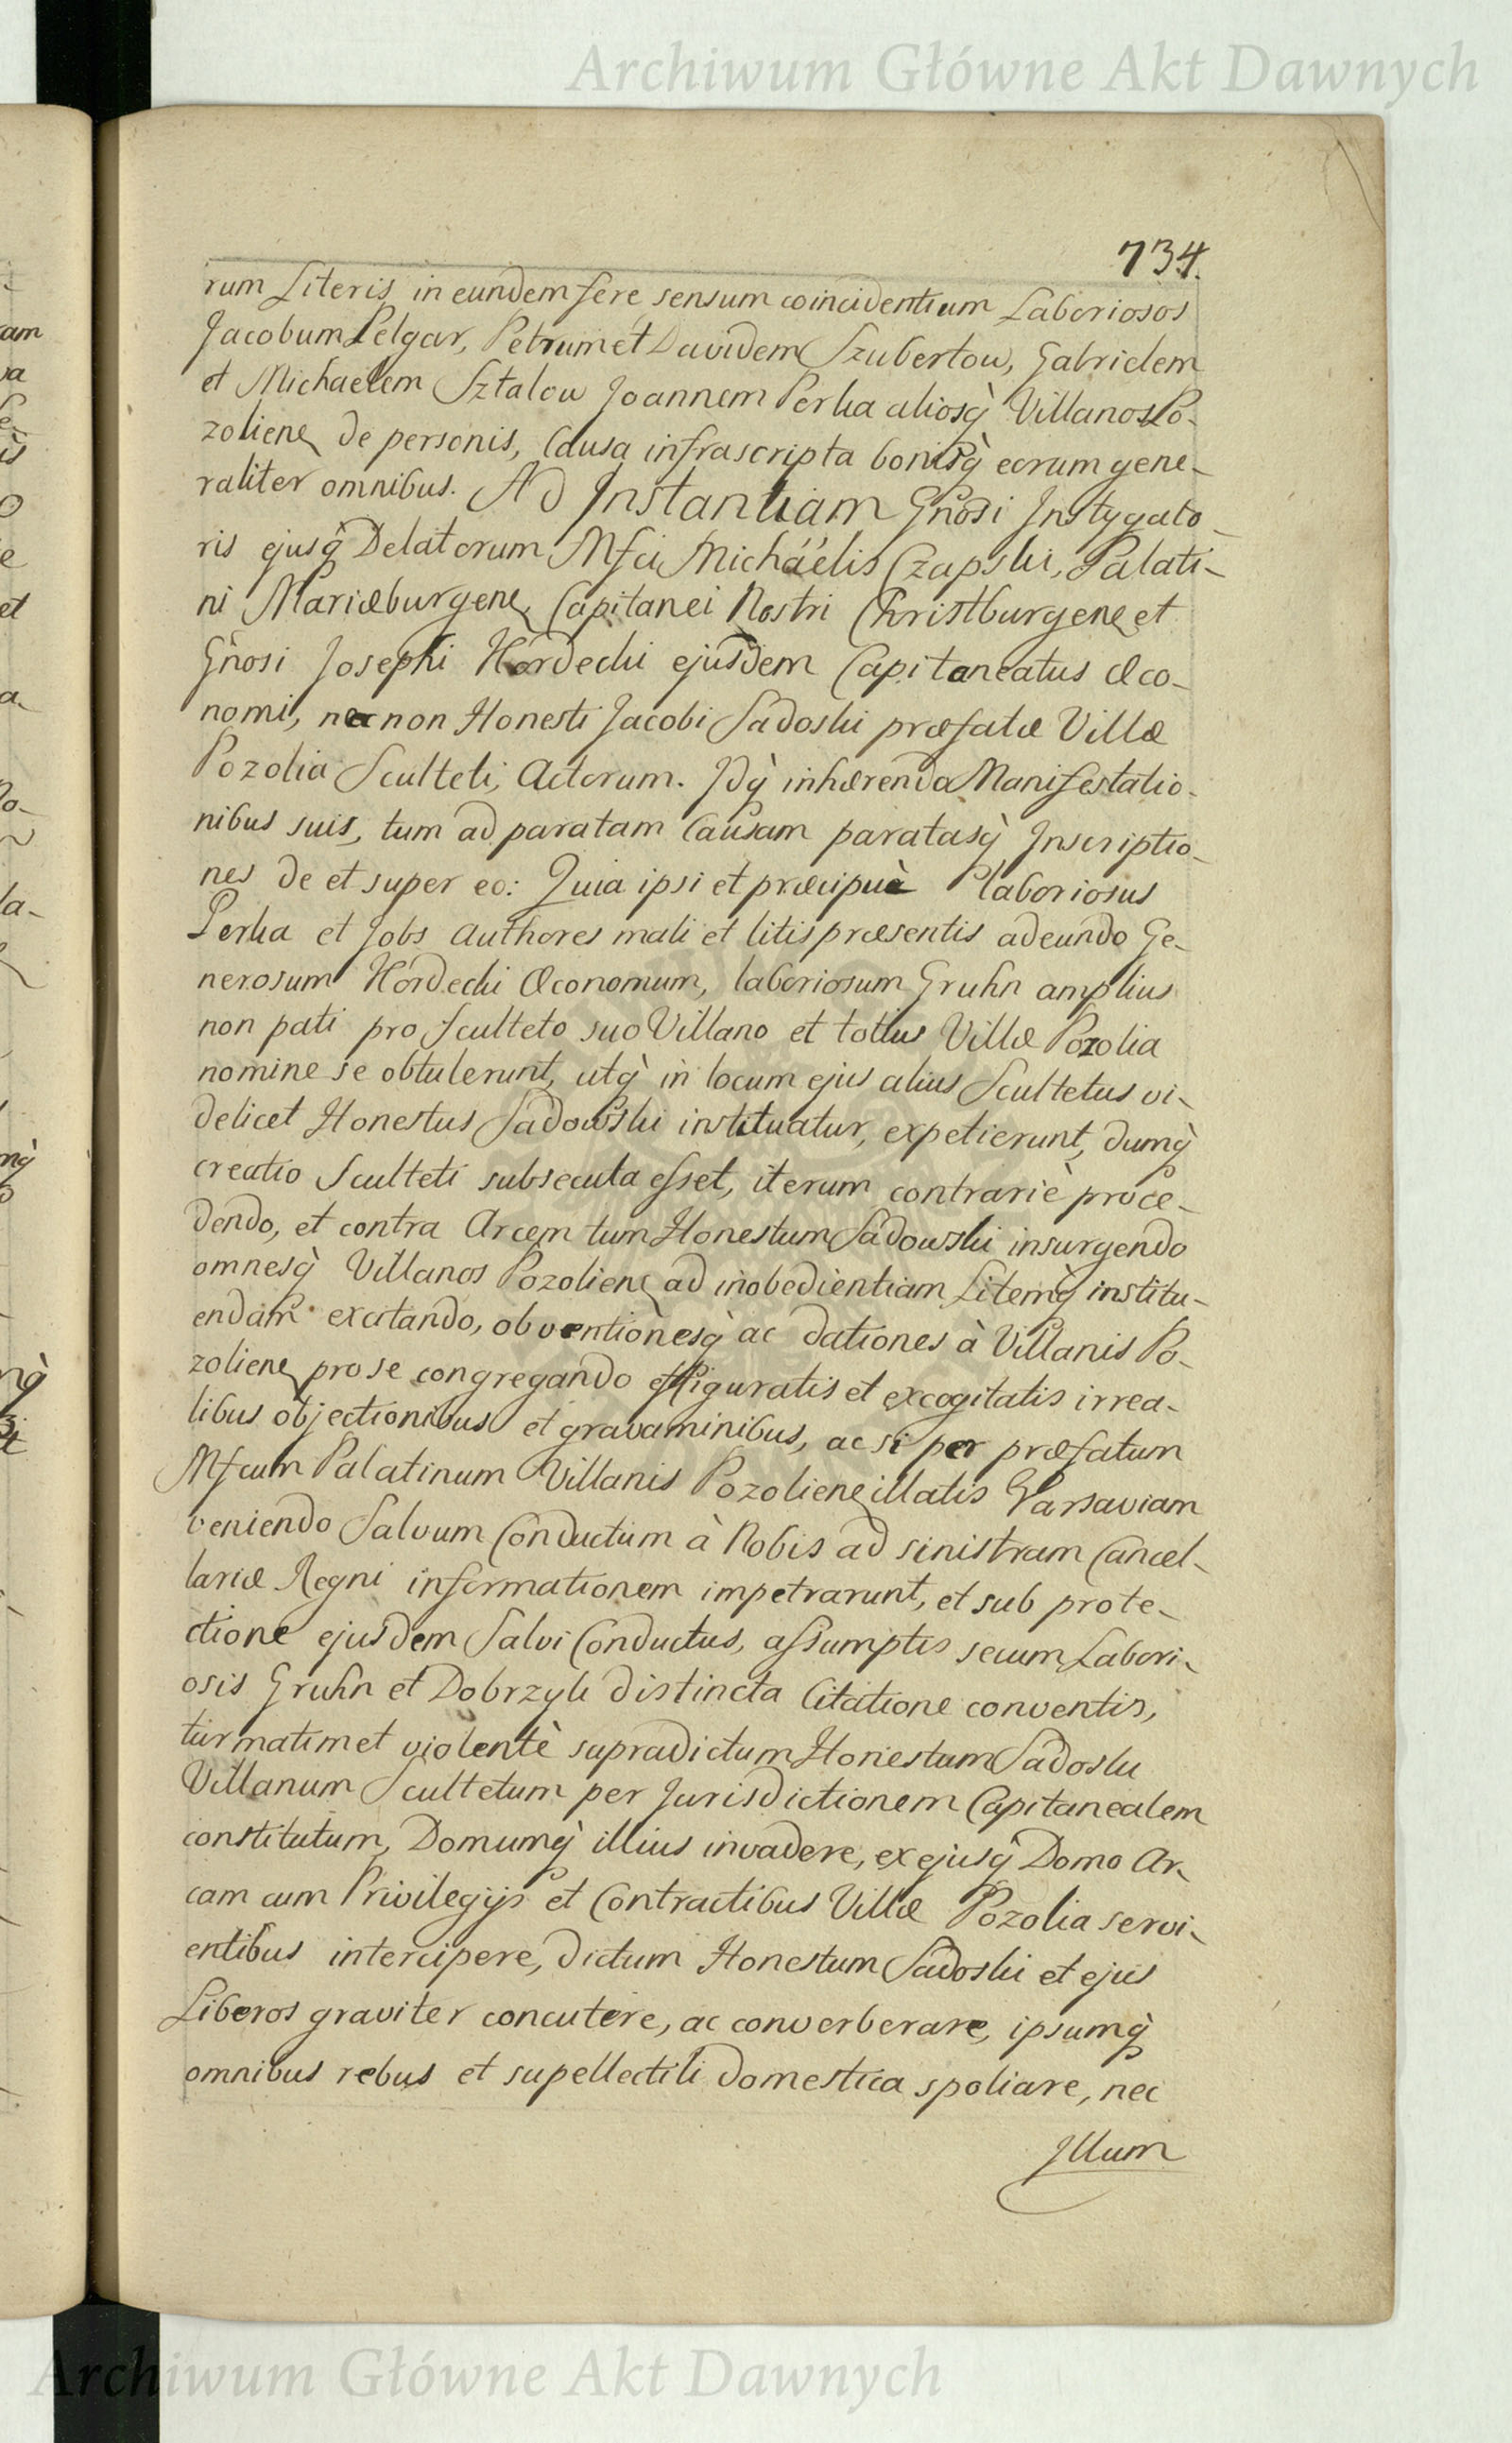 Archiwum Główne Akt Dawnych
734.
rum Literis in eundem fere sensum coincidentium Laboriosos
Jacobum Pelgar, Petrum et Davidem Szubertow, Gabrielem
et Michaelem Sztalow Joannem Perka aliosq̀ Villanos Po-
zoliene de personis, Causa infrascripta bonisq̀ eorum gene-
raliter omnibus. Ad Instantiam Gñosi Instygato-
ris ejusq̀ Delatorum Mfci Michäelis Czapski, Palati-
ni Mariæburgene, Capitanei Nostri Christburgene et
Gñosi Josephi Hordecki ejusdem Capitaneatus Œco-
nomi, nec non Honesti Jacobi Sadoski præfatæ Villæ
Pozolia Sculteti, Actorum. Idq̀ inhærendo Manifestatio-
nibus suis, tum ad paratam Causam paratasq̀ Inscriptio-
nes de et super eo: Quia ipsi et præcipuè laboriosus
Perka et Jobs Authores mali et litis præsentis adeundo Ge-
nerosum Hordecki Œconomum, laboriosum Gruhn amplius
non pati pro Sculteto suo Villano et totius Villæ Pozolia
nomine se obtulerunt, utq̀ in locum ejus alius Scultetus vi-
delicet Honestus Sadowski instituatur, expetierunt, dumq̀
creatio Sculteti subsecuta esset, iterum contrariè proce-
dendo, et contra Arcem tum Honestum Sadowski insurgendo
omnesq̀ Villanos Pozoliene ad inobedientiam Litemq̀ institu-
endam excitando, obventionesq̀ ac dationes à Villanis Po-
zoliene pro se congregando effiguratis et excogitatis irrea-
libus objectionibus et gravaminibus, ac si per præfatum
Mfcum Palatinum Villanis Pozoliene illatis Varsaviam
veniendo Salvum Conductum à Nobis ad sinistram Cancel-
lariæ Regni informationem impetrarunt, et sub prote-
ctione ejusdem Salvi Conductus, assumptis secum Labori-
osis Gruhn et Dobrzyk distincta Citatione conventis,
turmatim et violentè supradictum Honestum Sadoski
Villanum Scultetum per Jurisdictionem Capitanealem
constitutum, Domumq̀ illius invadere, ex ejusq̀ Domo Ar-
cam cum Privilegijs et Contractibus Villæ Pozolia servi-
entibus intercipere, dictum Honestum Sadoski et ejus
Liberos graviter concutere, ac converberare, ipsumq̀
omnibus rebus et supellectili domestica spoliare, nec
Illum
Archiwum Główne Akt Dawnych